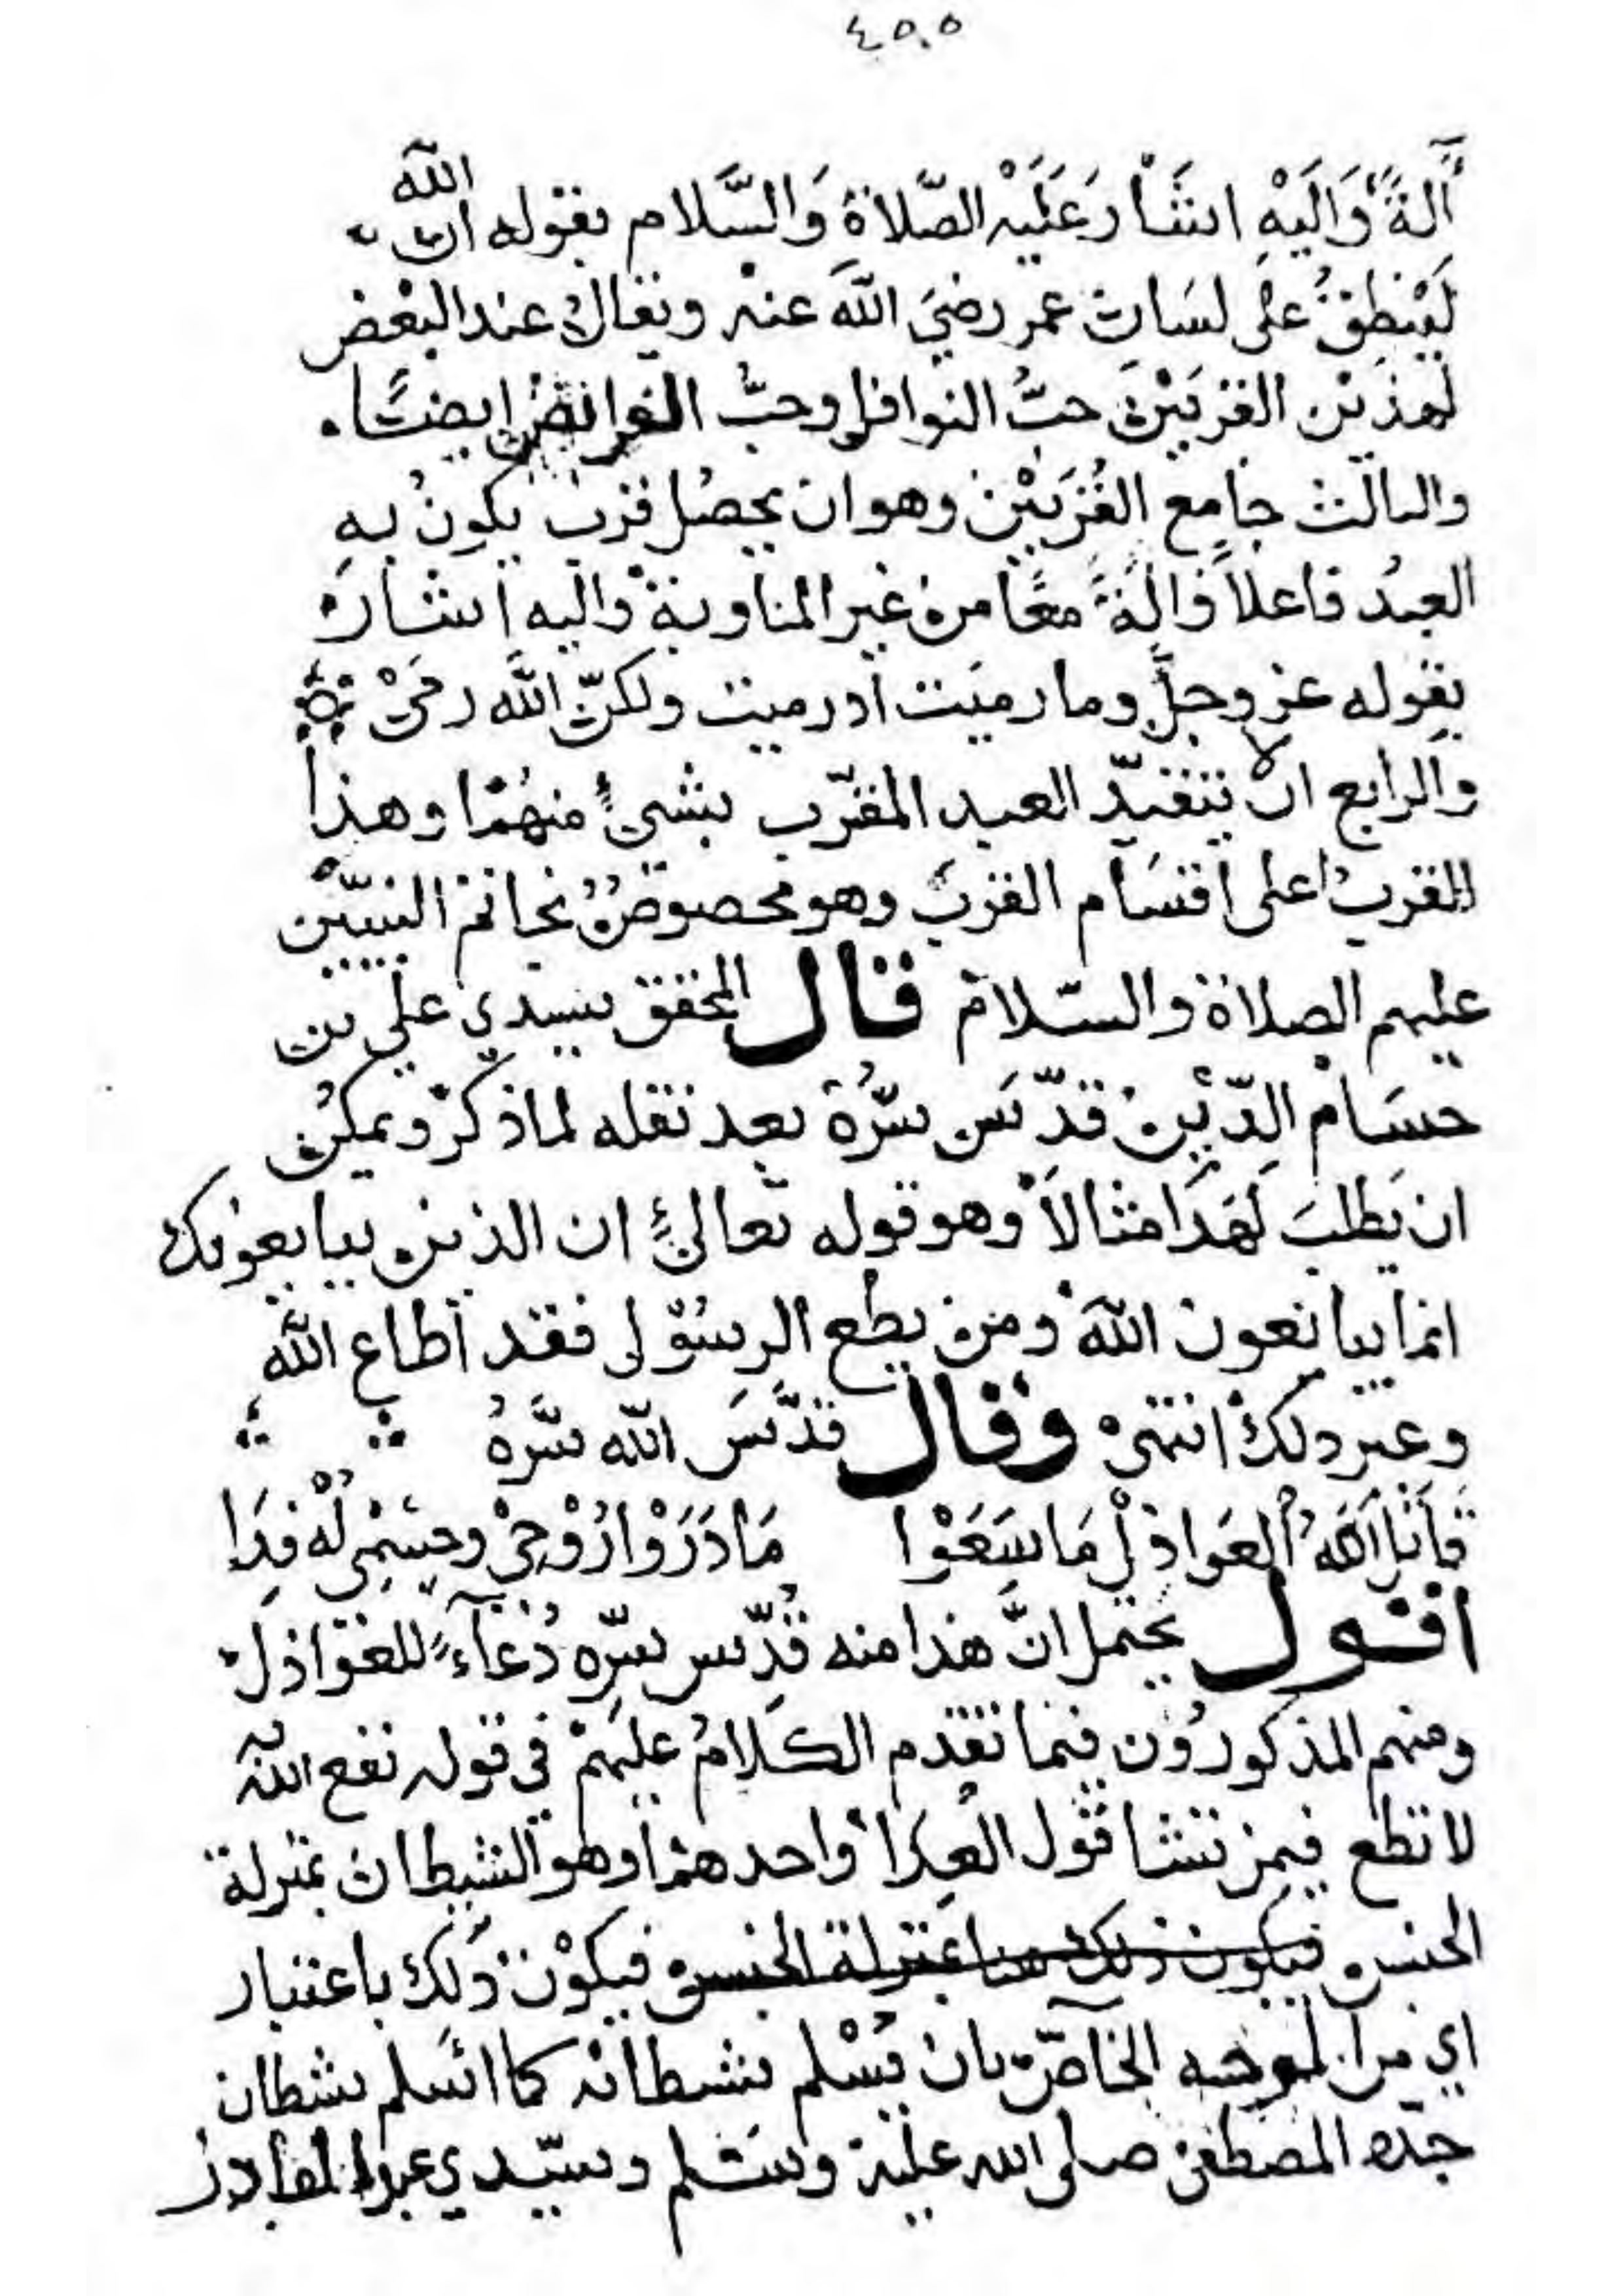 ٤٥٠٥
آلَةً وَالَيْهِ اشَارَ عَلَيْهِ الصَّلاةُ وَالسَّلام بقوله ان الله
لَيَنطِقُ على لسَان عمر رضيَ الله عنه ويقال عند البعْض
لهذين القربَيْن حبُّ النوافل وحبُّ الفرائض ايضًا
والثالث جامع القُرْبَيْن وهو ان يحصُل قرب يكونُ بهِ
العبدُ فاعلاً وَالَةً معًا من غير المناوبة واليه اشار
بقوله عز وجلَّ وما رميَت اذ رميت ولكنّ الله رمىْ
والرابع ان لا يتقيّد العبد المقرّب بشيئٍ منهُمَا وهذا
القربُ اعلى اقسَام القرب وهو مخصوصٌ بخاتم النبيّيْن
عليهم الصلاة والسّلام قال المحقق سيدي علي بن
حسَام الدّيْن قدّسَ سرُّهُ بعد نقله لما ذكرَ ويمكن
ان يَطلبَ لهَذَا مثالاً وهو قوله تعالىٰ ان الذين يبايعونك
انما يبايعون الله ومن يطع الرسُوْل فقد اطاع الله
وغير ذلك انتهىْ وقال قدَّسَ الله سَّرهُ
فَأَنَا العَوَاذِلْ مَا سَعَوْا مَا دَرَوْا رُوْحِيْ وجِسْمِيْ لُهْ فِدَا
اقول يحتمل انَّ هذا منه قُدّس سرّه دُعآءً للعَوَاذل
ومنهم المذكورُوْن فيما تقدم الكَلامُ عليهمْ في قوله نفع الله به
لا تطع فيمن تشا قول العِدَا واحدهمَا وهو الشيطان بمنزلة
الجنس فيكوْن ذلك باعتبار
اي من الوجه الخاصّ بان يُسْلم شيطانه كما اسلم شيطان
جدّه المصطفى صلى الله عليْه وسَلم وسيّدي عبد القادر